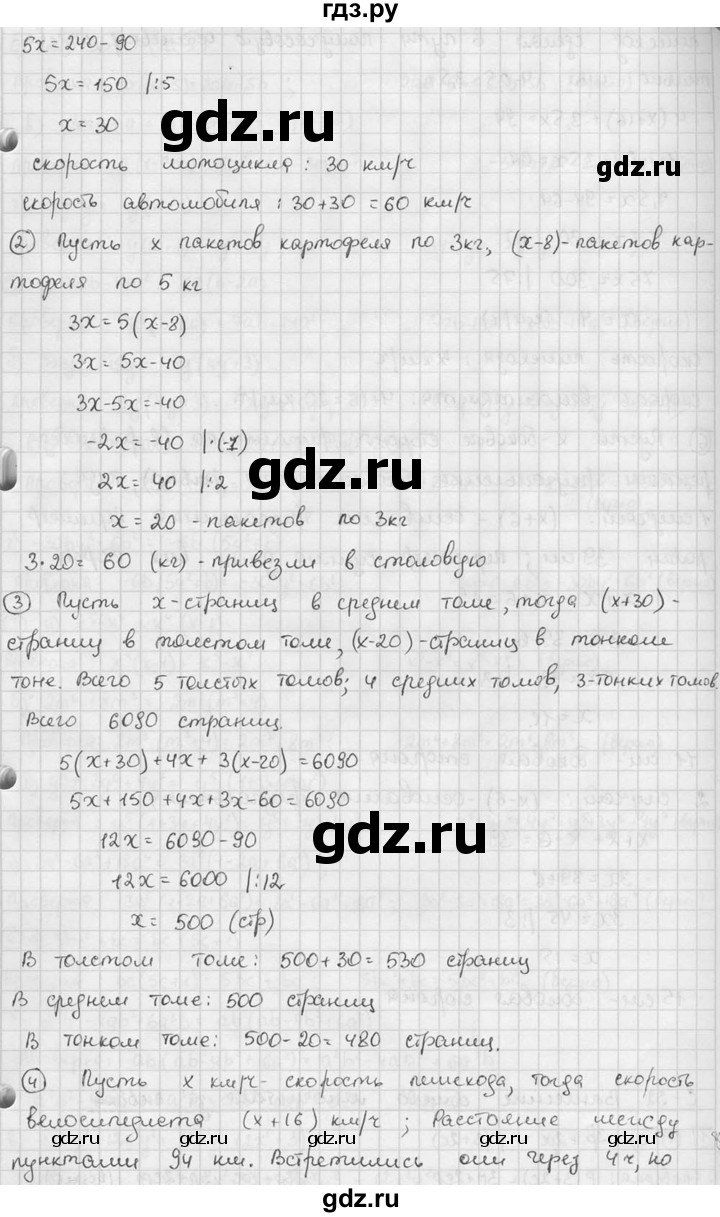 гдз.ру
5x = 240 - 90
5x = 150 |:5
x = 30
gdz.ru
скорость мотоцикла: 30 км/ч
скорость автомобиля: 30+30 = 60 км/ч
② Пусть x пакетов картофеля по 3кг, (x-8)-пакетов кар-
тофеля по 5 кг
3x = 5(x-8)
3x = 5x-40
3x-5x = -40
-2x = -40 |·(-1)
gdz.ru
2x = 40 |:2
x = 20 - пакетов по 3кг
3·20 = 60 (кг) - привезли в столовую
③ Пусть x-страниц в среднем томе, тогда (x+30)-
страниц в толстом томе, (x-20)-страниц в тонком
томе. Всего 5 толстых томов; 4 средних томов, 3-тонких томов.
Всего 6090 страниц.
5(x+30)+4x+3(x-20) = 6090
5x+150+4x+3x-60 = 6090
12x = 6090-90
gdz.ru
12x = 6000 |:12
x = 500 (стр)
В толстом томе: 500+30 = 530 страниц
В среднем томе: 500 страниц
В тонком томе: 500-20 = 480 страниц.
④ Пусть x км/ч- скорость пешехода, тогда скорость
велосипедиста (x+16) км/ч; Расстояние между
gdz.ru gdz.ru gdz.ru
пунктами 94 км. Встретились они через 4ч, но
gdz.ru